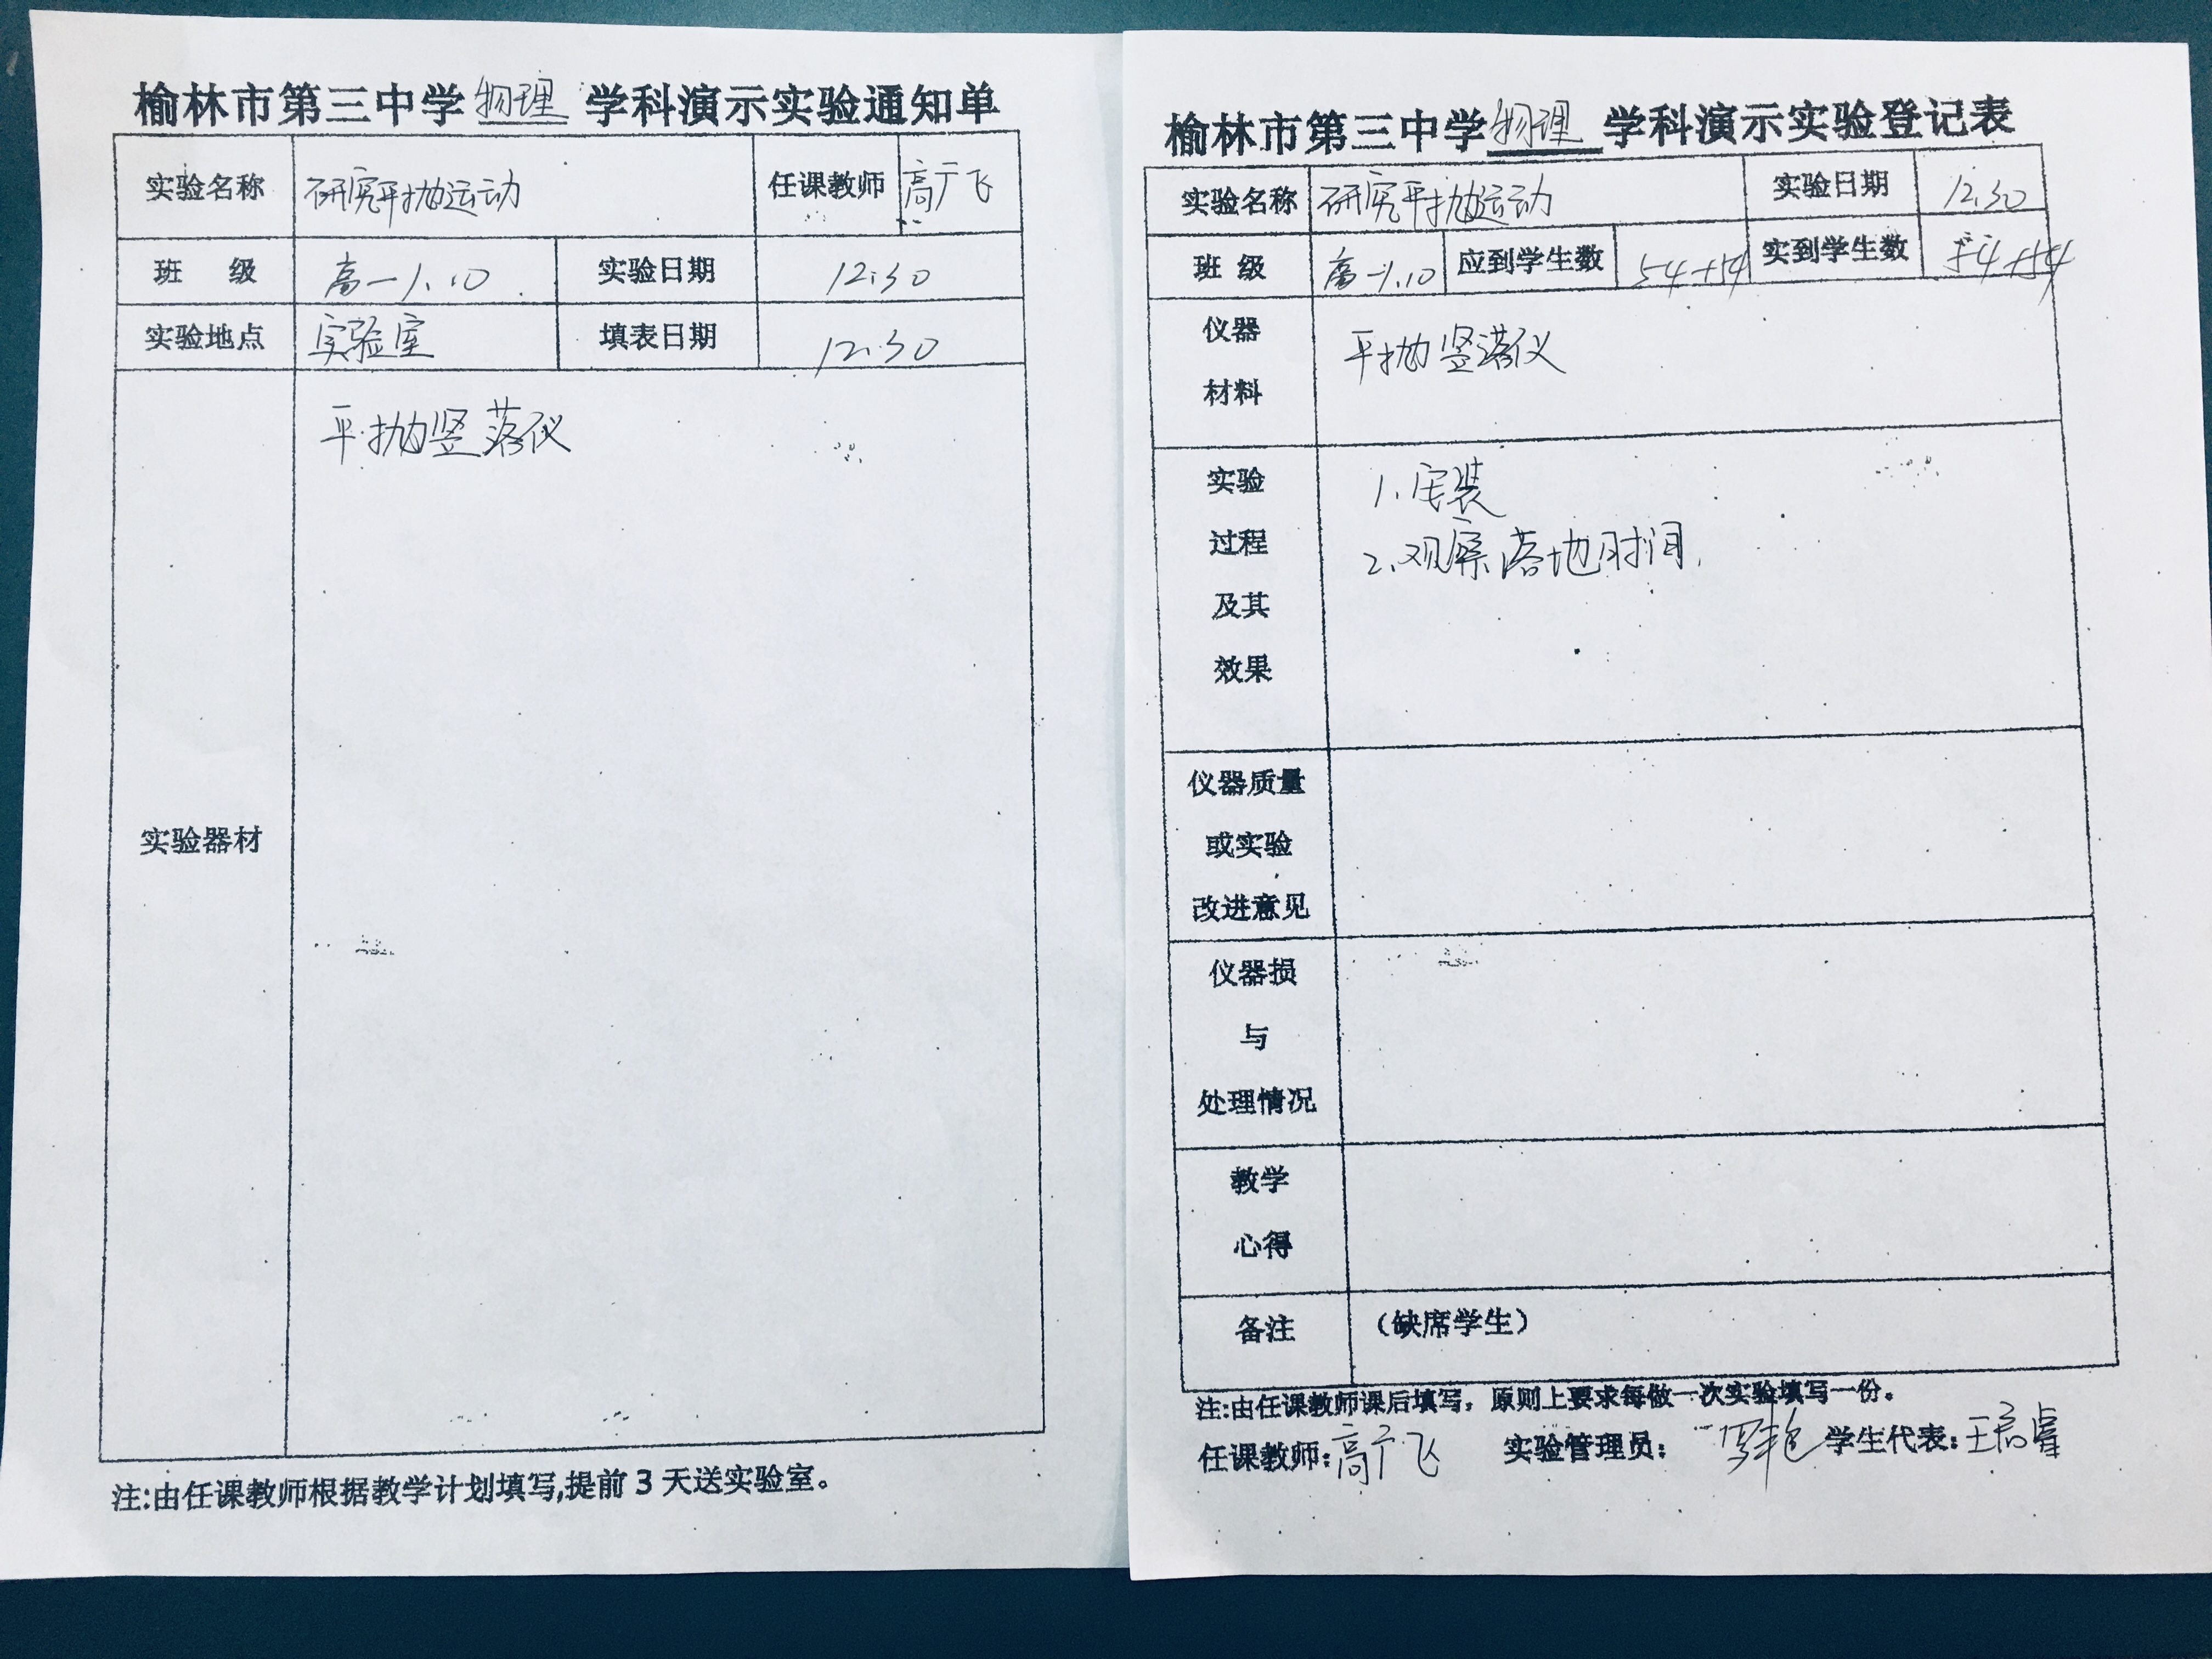 榆林市第三中学 物理 学科演示实验通知单
实验名称 研究平抛运动 任课教师 高广飞
班 级 高一1.10 实验日期 12.30
实验地点 实验室 填表日期 12.30
实验器材 平抛竖落仪
注:由任课教师根据教学计划填写,提前3天送实验室。
榆林市第三中学物理学科演示实验登记表
实验名称 研究平抛运动 实验日期 12.30
班 级 高一1.10 应到学生数 54+54 实到学生数 54+54
仪器
材料
平抛竖落仪
实验
过程
及其
效果
1.安装
2.观察落地时间.
仪器质量
或实验
改进意见
仪器损
与
处理情况
教学
心得
备注 （缺席学生）
注:由任课教师课后填写，原则上要求每做一次实验填写一份。
任课教师:高广飞 实验管理员: 学生代表: